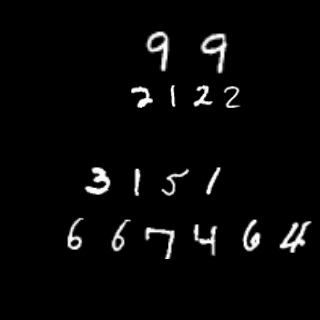 99
2122
3151
667464